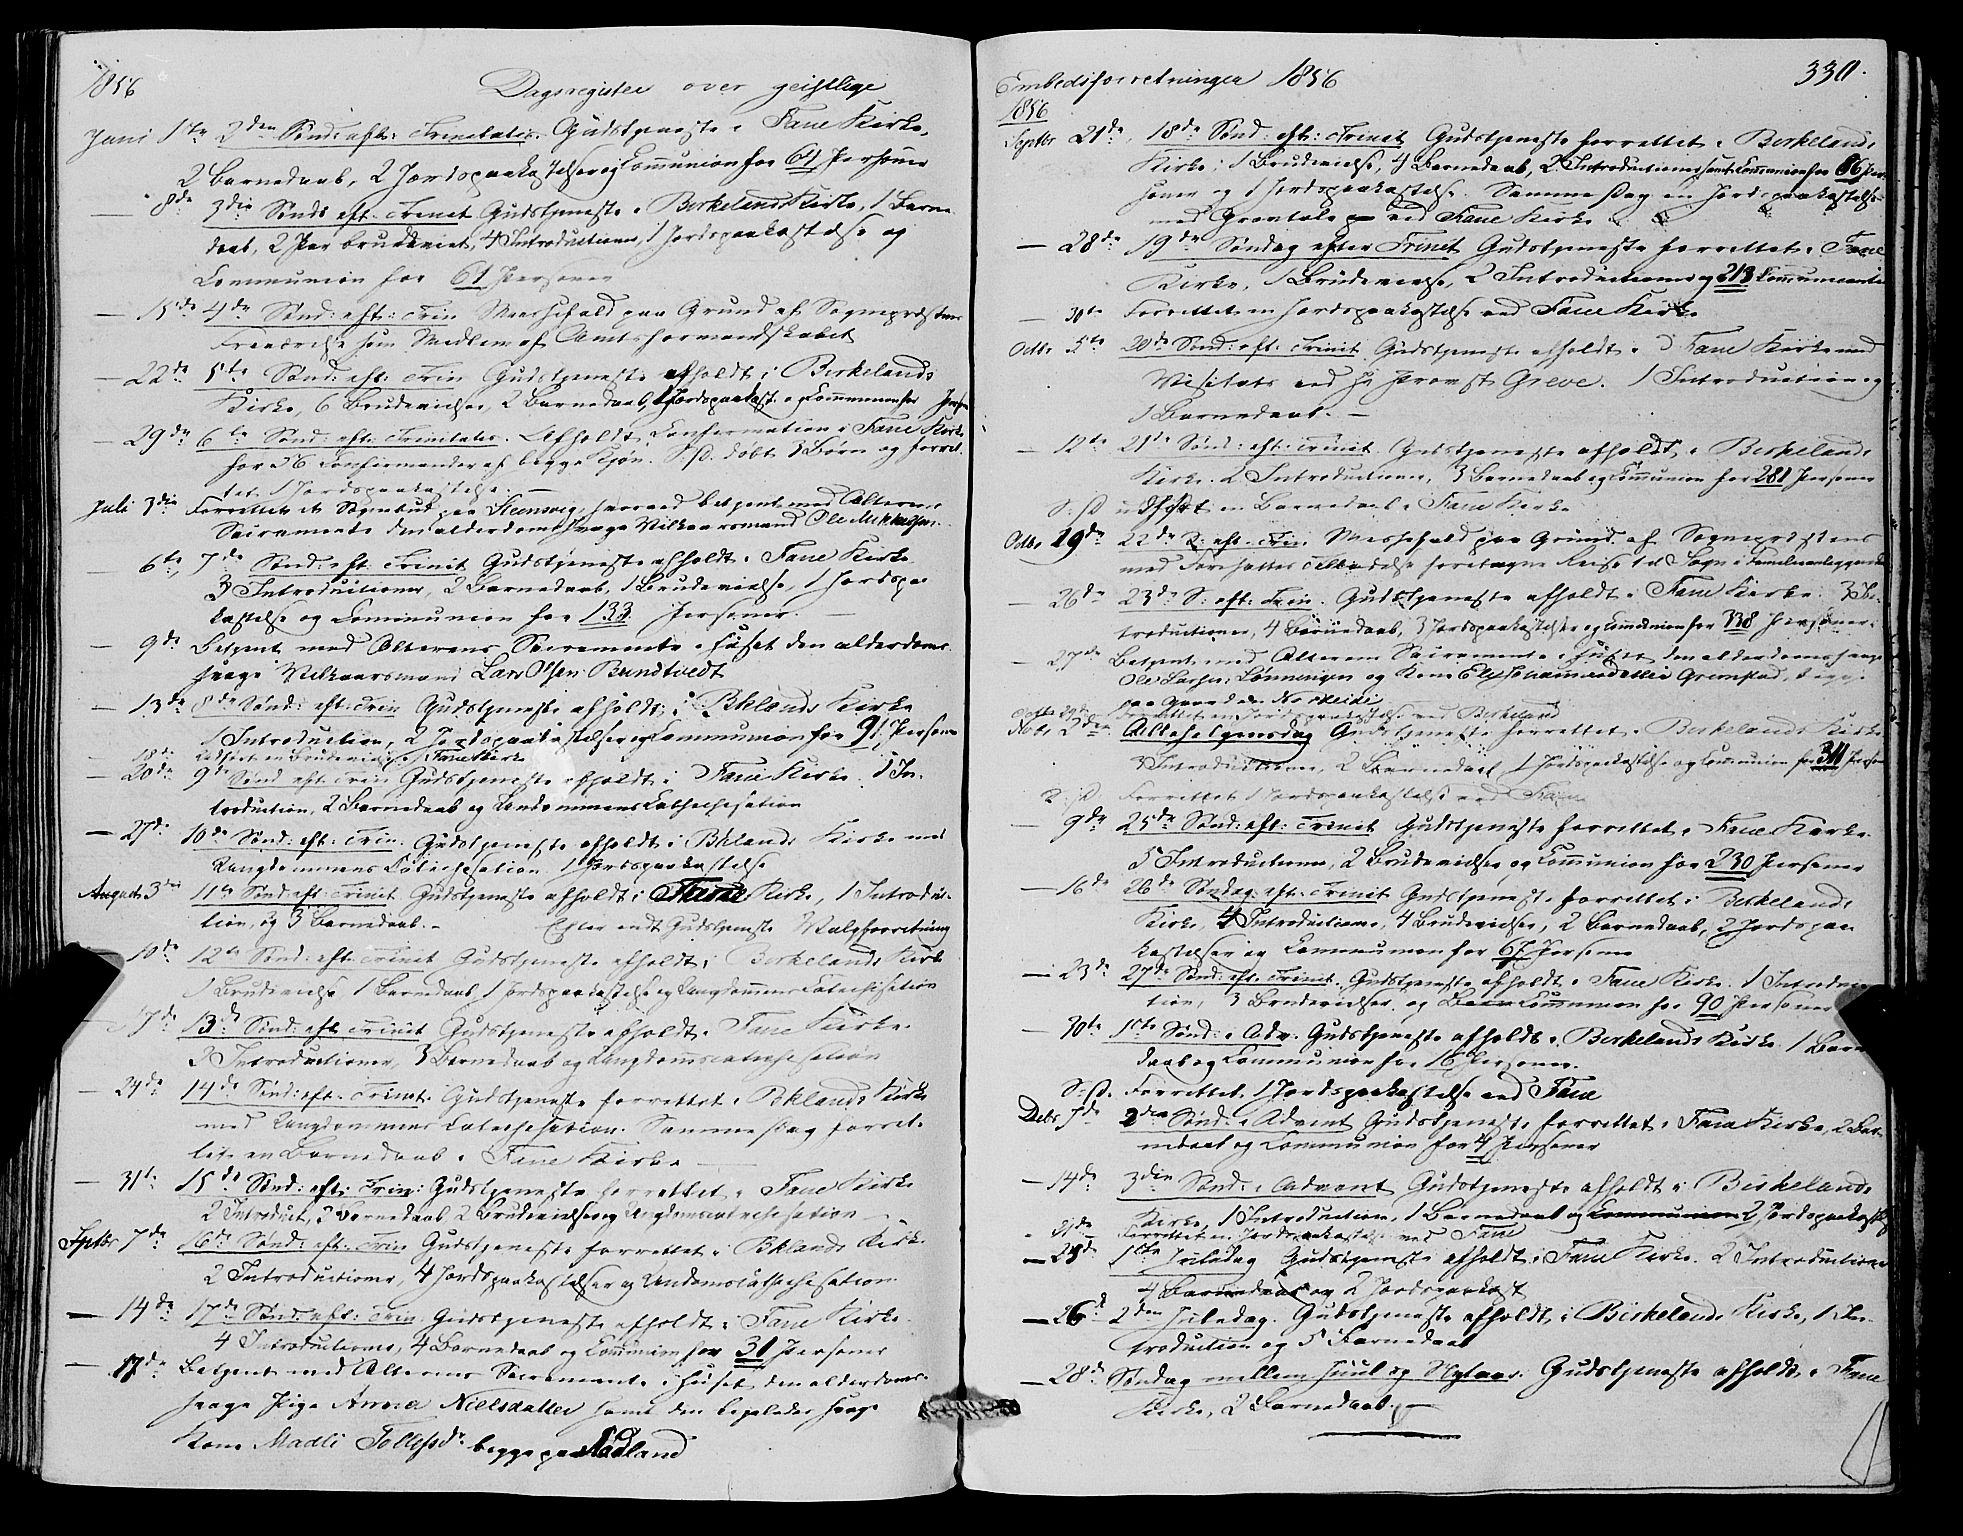 1856 Dagsregister over geistlige
Juni 1ste 2den Sønd: eft: Trinitatis. Gudstjeneste i Fane Kirke,
2 Barnedaab, 2 Jordspaakastelser og Communion for 64 Personer
— 8de 3die Sønd: eft: Trinit Gudstjeneste i Birkelands Kirke, 1 Barne
daab, 2 Par brudeviet, 4 Introductioner, 1 Jordspaakastelse og
Communion for 61 Personer
— 15de 4de Sønd: eft: Trin Messefald paa Grund af Sognepræstens
Fraværelse som Medlem af Amtsformandskabet
— 22de 5te Sønd: eft: Trin Gudstjeneste afholdt i Birkelands
Kirke, 6 Brudevielser, 2 Barnedaab, Jordspaakast. og Communion for Pers
— 29de 6te Sønd: eft: Trinitatis. Afholdt Confirmation i Fane Kirke
for 56 Confirmander af begge Kjøn. S.D. døbt 3 Børn og forret
tet 1 Jordspaakastelse. —
Juli 3die Forrettet et Sognebud paa betjent med Alterens
Sacramente den alderdomssvage Vilkaarsmand Ole
— 6te 7de Sønd: eft. Trinit Gudstjeneste afholdt i Fane Kirke
3 Introductioner, 2 Barnedaab, 1 Brudevielse, 1 Jordspaa
kastelse og Communion for 133 Personer. —
— 9de Betjent med Alterens Sacramente i Huset den alderdoms
svage Vilkaarsmand Lars Olsen Bundtvedt
— 13de 8de Sønd: eft: Trin Gudstjeneste afholdt i Bklands Kirke
1 Introduction, 2 Jordspaakastelser og Communion for 91 Personer
— 18de en Brudevielse i Fane Kirke
— 20de 9de Sønd eft: Trin Gudstjeneste afholdt i Fane Kirke. 1 In-
troduction, 2 Barnedaab og Ungdommens Catechisation
— 27de 10de Sønd: eft: Trin. Gudstjeneste afholdt i Bklands Kirke med
Ungdommens Catechisation 1 Jordspaakastelse
August 3die 11te Sønd eft: Trinit Gudstjeneste afholdt i Fane Kirke, 1 Introduc-
tion, og 3 Barnedaab. – Efter endt Gudstjeneste Valgforretning
10de 12te Sønd: eft: Trinit Gudstjeneste afholdt i Birkelands Kirke
1 Brudevielse, 1 Barnedaab, 1 Jordspaakastelse og Ungdommens Catechisation
17de 13de Sønd: eft Trinit Gudstjeneste afholdt i Fane Kirke.
Introductioner, 3 Barnedaab og Ungdomscatechisation
— 24de 14de Sønd: eft. Trinit. Gudstjeneste forrettet i Bklands Kirke
med Ungdommens Catechisation. Samme Dag forret-
tet en Barnedaab i Fane Kirke —
— 31te 15de Sønd: eft: Trin: Gudstjeneste forrettet i Fane Kirke
2 Introduct, 3 Barnedaab 2 Brudevielser og Ungdomscatechisation
Septbr 7de 16de Sønd: eft: Trin Gudstjeneste forrettet i Bklands Kirke.
2 Introductioner, 4 Jordspaakastelser og Ungdomscatechisation
— 14de 17de Sønd: eft: Trin Gudstjeneste afholdt i Fane Kirke.
4 Introductioner, 4 Barnedaab og Communion for 31 Personer
— 17de Betjent med Alterens Sacramente i Huset den alderdoms-
svage Pige Anna Nielsdatter samt den svage
Kone Madli Tollefsdr begge paa Aadland
Embedsforretninger 1856 330.
1856
Septbr 21de 18de Sønd: eft: Trinit Gudstjeneste forrettet i Birkelands
Kirke; 1 Brudevielse, 4 Barnedaab, 2 Introductioner samt Communion for 66 Per
soner og 1 Jordspaakastelse. Samme Dag en Jordspaakastelse
med Gravtale ved Fane Kirke
— 28de 19de Søndag efter Trinit Gudstjeneste forrettet i Fane
Kirke, 1 Brudevielse, 2 Introductioner og 213 Communicanter
— 30te Forrettet en Jordspaakastelse ved Fane Kirke
Octbr 5te 20de Sønd: eft: Trinit Gudstjeneste afholdt i Fane Kirke med
Visitats ved Hr Provst Greve. 1 Introduction og
1 Barnedaab. —
— 12te 21de Sønd: eft: Trinit Gudstjeneste afholdt i Birkelands
Kirke. 2 Introductioner, 3 Barnedaab og Communion for 281 Personer
S. D. en Barnedaab i Fane Kirke
Octbr 19de 22de S: eft: Trin. Messefald paa Grund af Sognepræstens
med Foresattes Tilladelse foretagne Reise til Sogn i Familieanliggender
— 26de 23de S: eft: Trin. Gudstjeneste afholdt i Fane Kirke. 3 In-
troductioner, 4 Barnedaab, 3 Jordspaakastelser og Communion for 338 Personer.
— 27de Betjent med Alterens Sacramente i Huset den alderdomssvage
Ole Larsen Lønningen og Kone Elji Johannesdatter Grimstad, begge
paa Gaarden
Octbr 29de Forrettet en Jordspaakastelse ved Birkeland
Novbr 2den Allehelgensdag Gudstjeneste forrettet i Birkelands Kirke
3 Introductioner, 2 Barnedaab, 1 Jordspaakastelse og Communion for 311 Person
S. D. Forrettet 1 Jordspaakastelse ved Fane
— 9de 25de Sønd: eft: Trinit Gudstjeneste forrettet i Fane Kirke.
5 Introductioner, 2 Brudevielser og Communion for 230 Personer
— 16de 26de Søndag eft: Trinit Gudstjeneste forrettet i Birkelands
Kirke, 4 Introductioner, 4 Brudevielser, 2 Barnedaab, 2 Jordspaa
kastelser og Communion for 67 Personer
— 23de 27de Sønd: eft. Trinit. Gudstjeneste afholdt i Fane Kirke. 1 Introduc
tion, 3 Brudevielser og Communion for 90 Personer
— 30te 1ste Sønd: i Adv. Gudstjeneste afholdt i Birkelands Kirke. 1 Barne
daab og Communion for 16 Personer.
S. D. Forrettet 1 Jordspaakastelse ved Fane
Debr 7de 2den Sønd. i Advent Gudstjeneste forrettet i Fane Kirke, 2 Bar-
nedaab og Communion for 4 Personer
— 14de 3die Sønd: i Advent Gudstjeneste afholdt i Birkelands
Kirke, 1 Introduction, 1 Barnedaab og Communion 2 Jordspaakast
21de Forrettet en Jordspaakastelse ved Fane
— 25de 1ste Juledag Gudstjeneste afholdt i Fane Kirke. 2 Introductioner
4 Barnedaab og 2 Jordspaakast
— 26d 2den Juledag. Gudstjeneste afholdt i Birkelands Kirke, 1 In-
troduction og 5 Barnedaab
— 28de Søndag mellem Juul og Nytaar. Gudstjeneste afholdt i Fane
Kirke, 2 Barnedaab. —